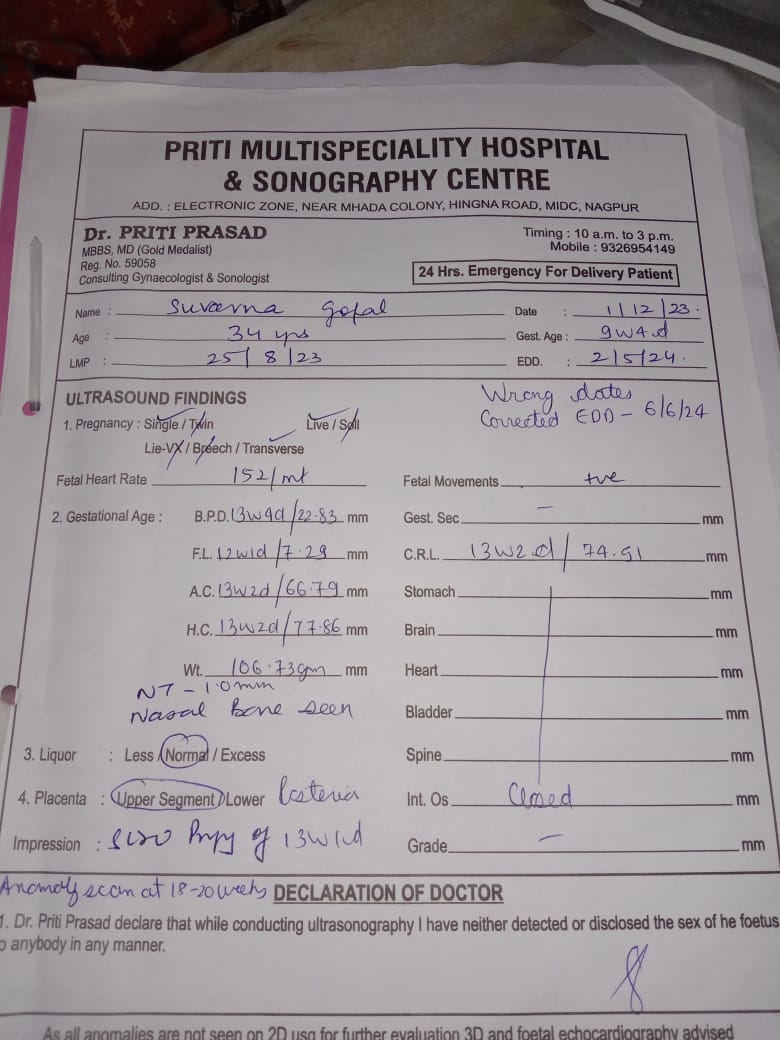 PRITI MULTISPECIALITY HOSPITAL
& SONOGRAPHY CENTRE
ADD. : ELECTRONIC ZONE, NEAR MHADA COLONY, HINGNA ROAD, MIDC, NAGPUR
Dr. PRITI PRASAD
MBBS, MD (Gold Medalist)
Reg. No. 59058
Consulting Gynaecologist & Sonologist
Timing : 10 a.m. to 3 p.m.
Mobile : 9326954149
24 Hrs. Emergency For Delivery Patient
Name : Suvarna Gopal Date : 1/12/23.
Age : 34 yrs Gest. Age : 9w4d
LMP : 25/8/23 EDD. : 2/5/24.
ULTRASOUND FINDINGS
Wrong dates
Corrected EDD - 6/6/24
1. Pregnancy : Single / Twin Live / Soll
Lie-VX / Breech / Transverse
Fetal Heart Rate 152/mt Fetal Movements +ve
2. Gestational Age : B.P.D. 13w4d/22.83 mm Gest. Sec - mm
F.L. 12w1d/7.29 mm C.R.L. 13w2d/74.51 mm
A.C. 13w2d/66.79 mm Stomach mm
H.C. 13w2d/77.86 mm Brain mm
Wt. 106.73gm mm Heart mm
NT - 1.0mm
Nasal Bone seen Bladder mm
3. Liquor : Less / Normal / Excess Spine mm
4. Placenta : Upper Segment / Lower Int. Os Closed mm
Impression : of 13w1d Grade - mm
Anomoly scan at 18-20 weeks DECLARATION OF DOCTOR
1. Dr. Priti Prasad declare that while conducting ultrasonography I have neither detected or disclosed the sex of he foetus
o anybody in any manner.
As all anomalies are not seen on 2D usg for further evaluation 3D and foetal echocardiography advised